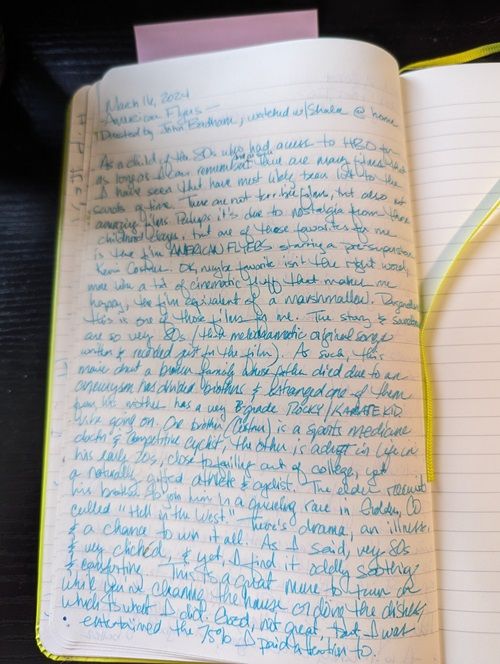 March 16, 2024
American Flyers —
Directed by John Badham, watched w/Shala @ home
As a child of the 80s who had access to HBO for
as long as I can remember there are many films that
I have seen that have most likely been lost to the
sands of time. These are not terrible films, but also not
amazing films. Perhaps it's due to nostalgia from those
childhood days, but one of those favorites for me
is the film AMERICAN FLYERS starring a pre-superstar
Kevin Costner. OK, maybe favorite isn't the right word,
more like a bit of cinematic fluff that makes me
happy, the film equivalent of a marshmallow.
this is one of those films for me. The story &
are so very 80s (think melodramatic original songs
written & recorded just for the film). As such, this
movie about a broken family whose father died due to an
aneurysm has divided brothers & estranged one of them
from his mother has a very B-grade ROCKY/KARATE KID
vibe going on. One brother (Costner) is a sports medicine
doctor & competitive cyclist, the other is adrift in life in
his early 20s, close to failing out of college, yet
a naturally gifted athlete & cyclist. The elder recruits
his brother to join him in a grueling race in Golden, CO
called "Hell in the West." There's drama, an illness,
& a chance to win it all. As I said, very 80s
& very clichéd, & yet, I find it oddly soothing
& comforting. This is a great movie to turn on
while you're cleaning the house or doing the dishes,
which is what I did. Good, not great that I was
entertained the 75% I paid attention to.